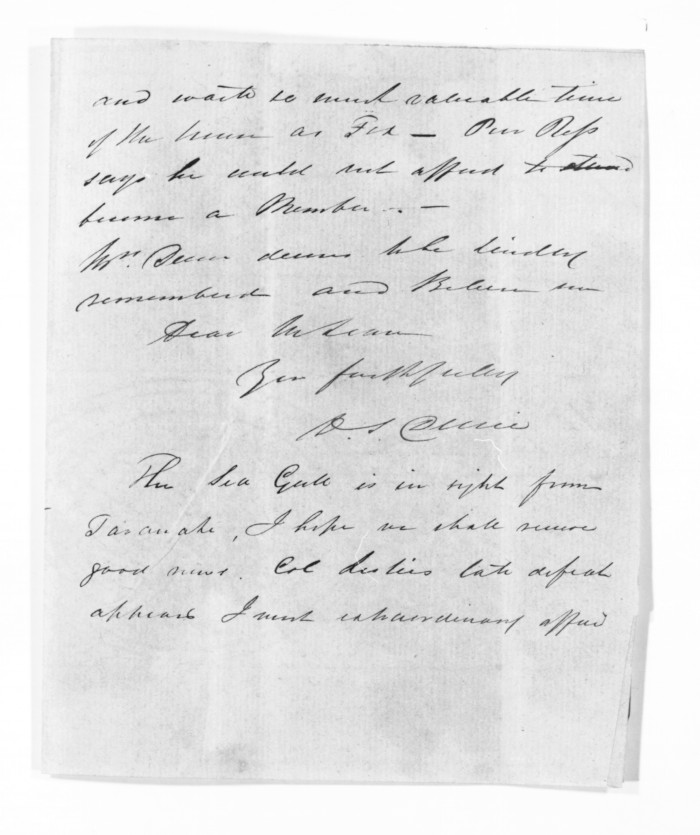 and waste so much valuable time
of the house as Fox — Poor Ross
says he could not afford to stand
become a Member . —
Mrs. Durie desires to be kindly
rememberd and Believe me
Dear McLean
Yours faithfully
D. S. Durie
The Sea Gull is in sight from
Taranaki, I hope we shall receive
good news. Col Leslies late defeat
appears I must extraordinary affair